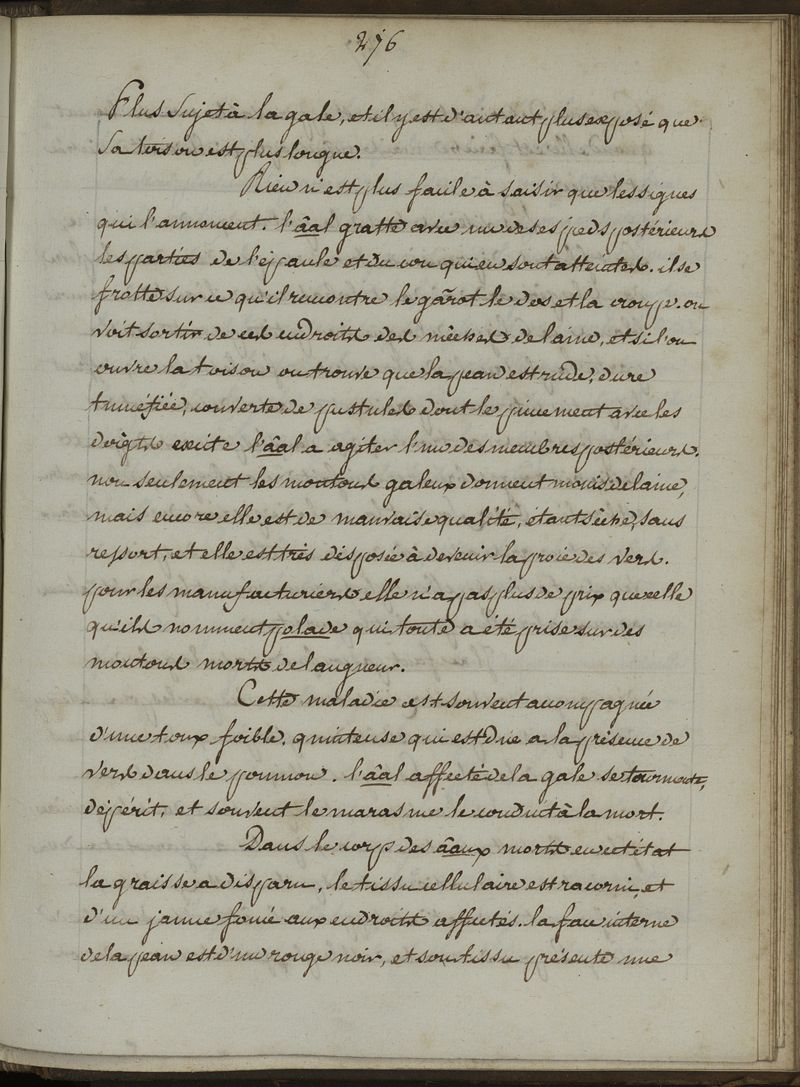 276
Plus sujet à la gale, et il y est d'autant plus exposé que
sa toison est plus longue.
Rien n'est plus facile à saisir que les signes
qui l'annoncent. l'âal gratte avec un de ses pieds postérieurs
les parties de l'épaule et du cou qui en sont atteintes. il se
frotte sur ce qu'il rencontre le garot le dos et la croupe. on
voit sortir de ces endroits des mêches de laine, et si l'on
ouvre la toison on trouve que la peau est rude, dure
tuméfiée, couverte de pustules dont le pincement avec les
doigts excite l'âal a agiter l'un des membres postérieurs.
non seulement les moutons galeux donnent moins de laine,
mais encore elle est de mauvaise qualité, étant sèche, sans
ressort, et elle est très disposée à devenir la proie des vers.
pour les manufacturiers elle n'a pas plus de prix que celle
qu'ils nomment pelade qui toute a été prise sur des
moutons morts de langueur.
Cette maladie est souvent accompagnée
d'une toux foible, quinteuse qui est due a la présence de
vers dans le poumon. l'âal affecté de la gale se tourmente,
dépérit, et souvent le marasme le conduit à la mort.
Dans le corps des âaux morts en cet état
la graisse a disparu, le tissu cellulaire est racorni, et
d'un jaune foncé aux endroits affectés. la face interne
de la peau est d'un rouge noir, et son tissu présente une